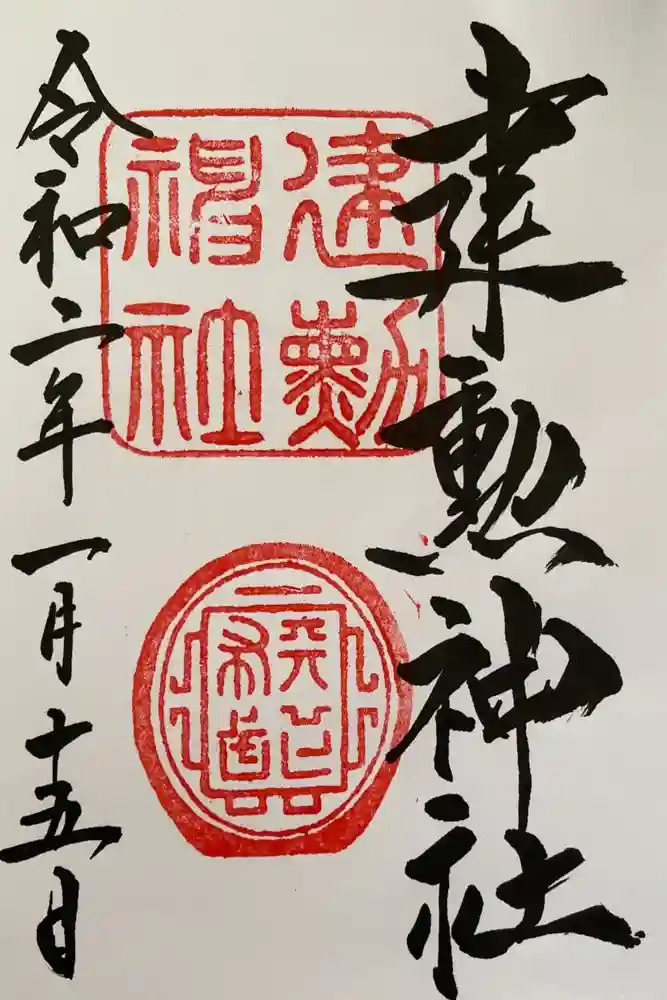 建勲神社
建勲
神社
天下
布武
令和二年一月十五日